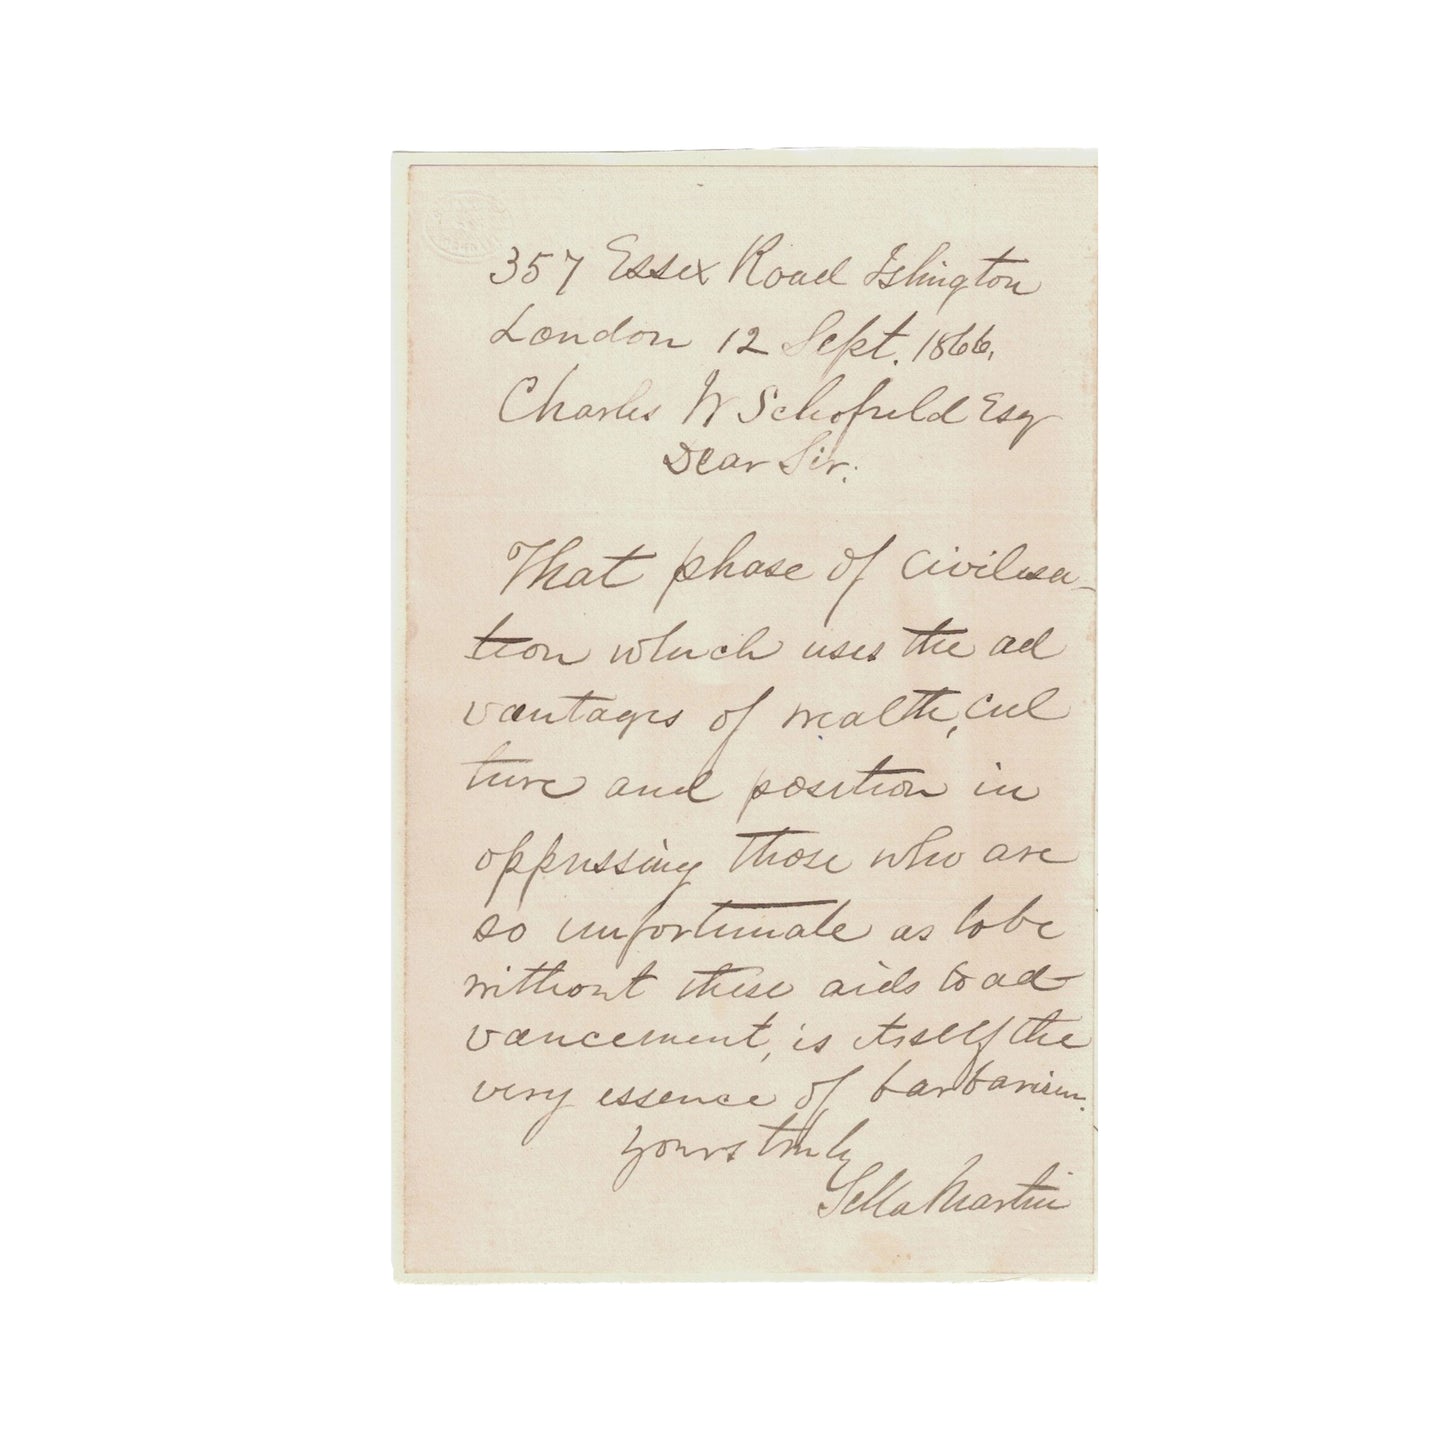 357 Essex Road Islington
London 12 Sept. 1866.
Charles W Schofield Esq
Dear Sir:
That phase of civilisa-
tion which uses the ad
vantages of wealth, cul
ture and position in
oppressing those who are
so unfortunate as to be
without these aids to ad-
vancement, is itself the
very essence of barbarism.
Yours truly
Sella Martin